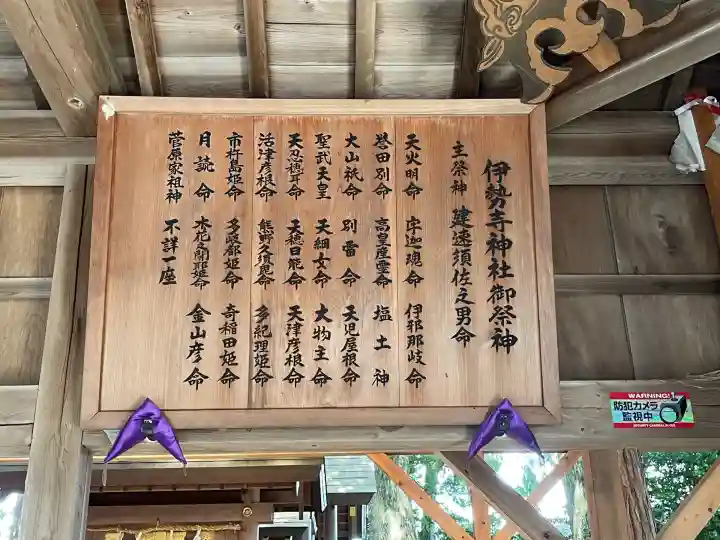 伊勢寺神社御祭神
主祭神 建速須佐之男命
天火明命 宇迦魂命 伊邪那岐命
誉田別命 高皇産霊命 塩土神
大山祇命 別雷命 天児屋根命
聖武天皇 天細女命 大物主命
天忍穂耳命 天穂日能命 天津彦根命
活津彦根命 熊野久須毘命 多紀理姫命
市杵島姫命 多岐都姫命 奇稲田姫命
月読命 木花之開耶姫命 金山彦命
菅原家祖神 不詳一座
WARNING!
防犯カメラ
監視中
SECURITY CAMERA IN USE